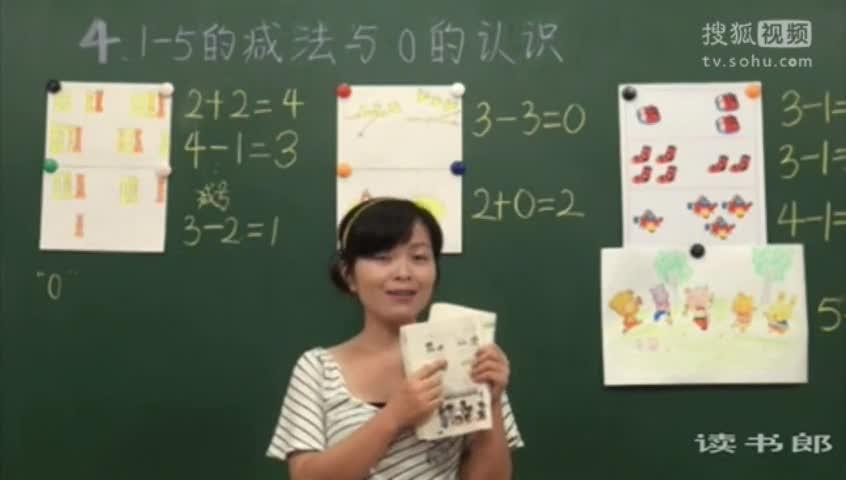 4.1-5的减法与0的认识
搜狐视频
tv.sohu.com
2+2=4
4-1=3
减号
3-2=1
"0"
3-3=0
2+0=2
3-1=
3-1=
4-1=
5-
读书郎